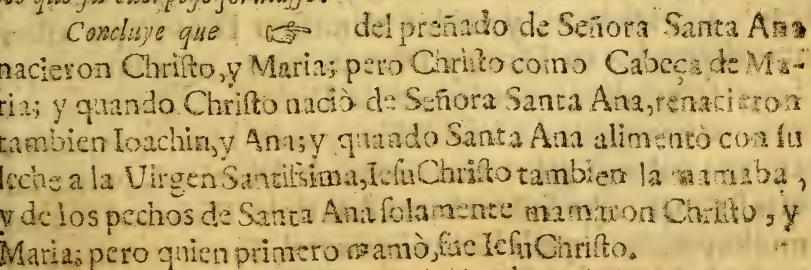 Concluye que ☞ del preñado de Señora Santa Ana
nacieron Chriſto, y Maria; pero Chriſto como Cabeça de Ma-
ria; y quando Chriſto naciò de Señora Santa Ana, renacieron
tambien Ioachin, y Ana; y quando Santa Ana alimentò con ſu
leche a la Uirgen Santiſsima, Ieſu Chriſto tambien la mamaba,
y de los pechos de Santa Ana ſolamente mamaron Chriſto, y
Maria; pero quien primero mamò, fue Ieſu Chriſto.